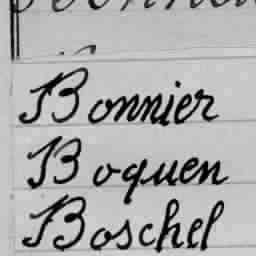 Bonnier
Boquen
Boschel